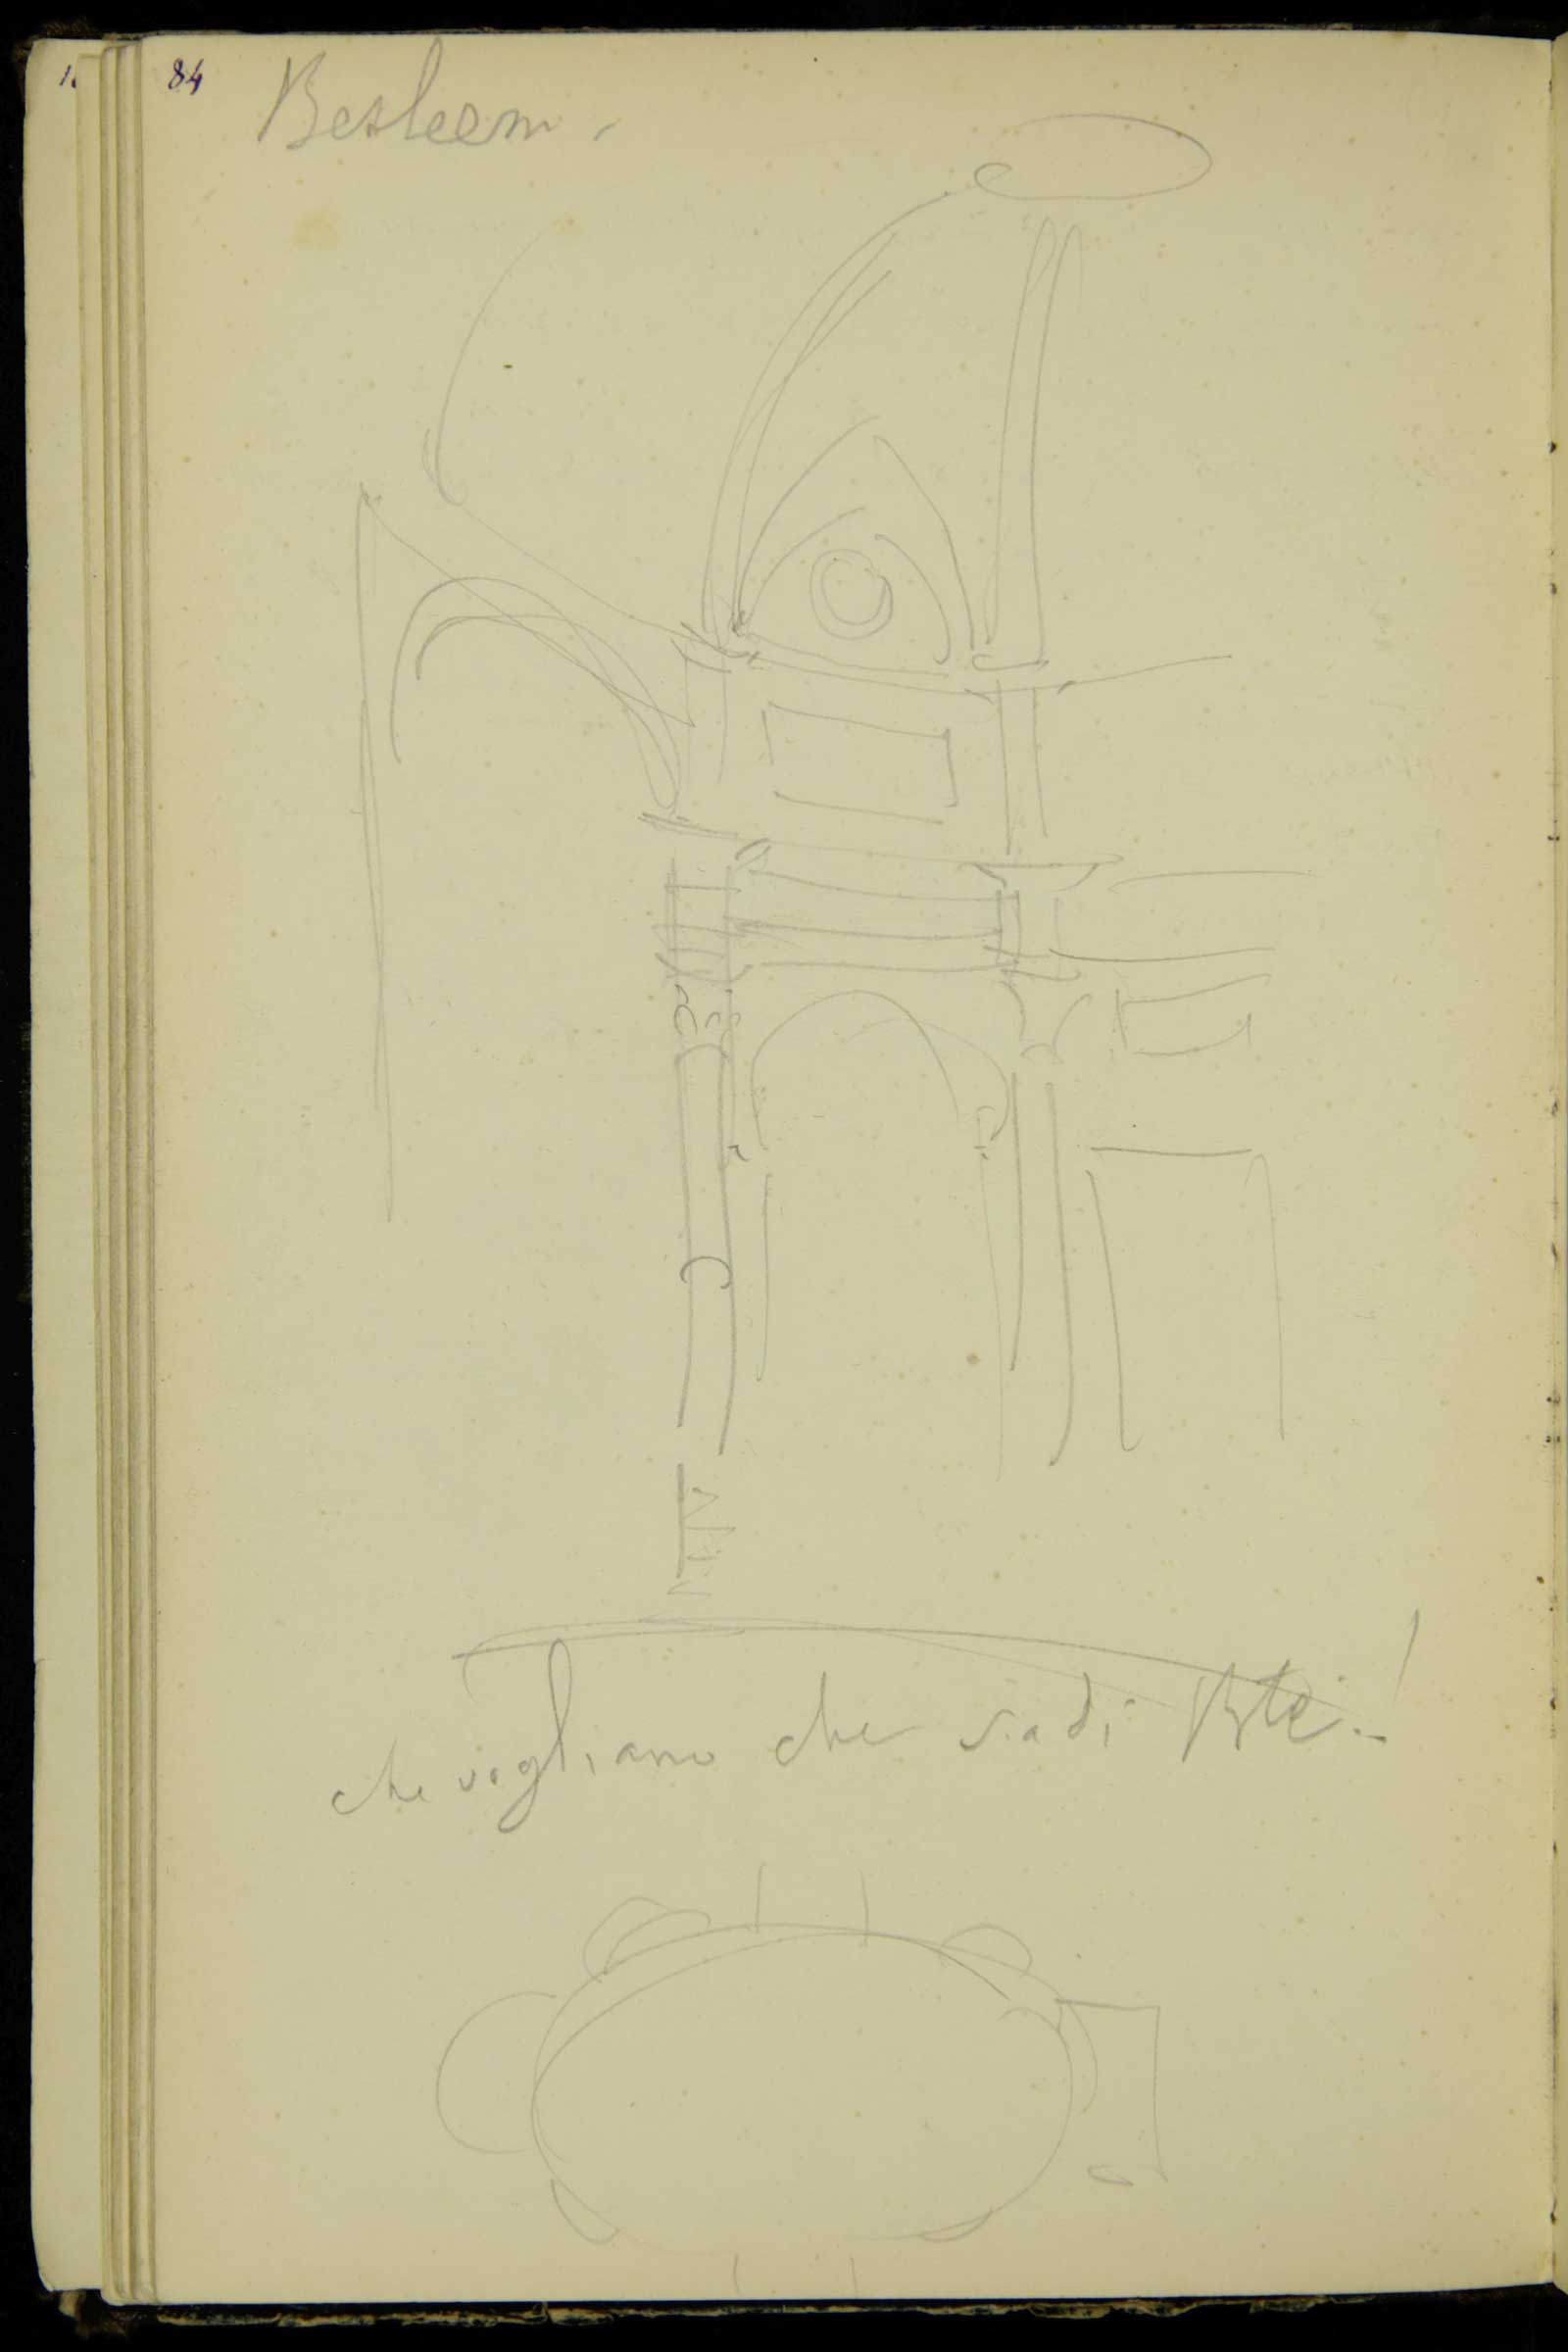 84
Betleem.
che vogliano che sia di